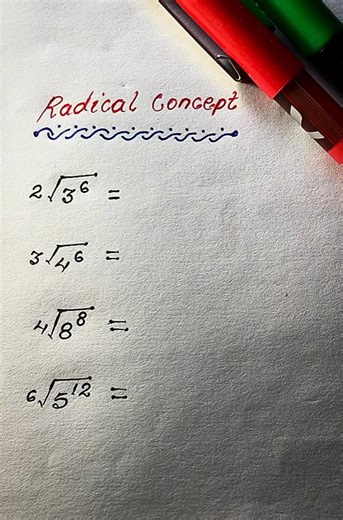 Radical Concept
2√3⁶ =
3√4⁶ =
4√8⁸ =
6√5¹² =